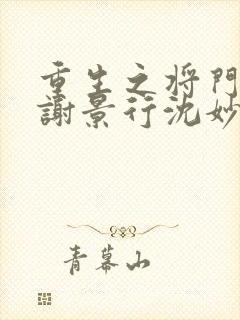 重生之将門
謝景行沈妙
青幕山